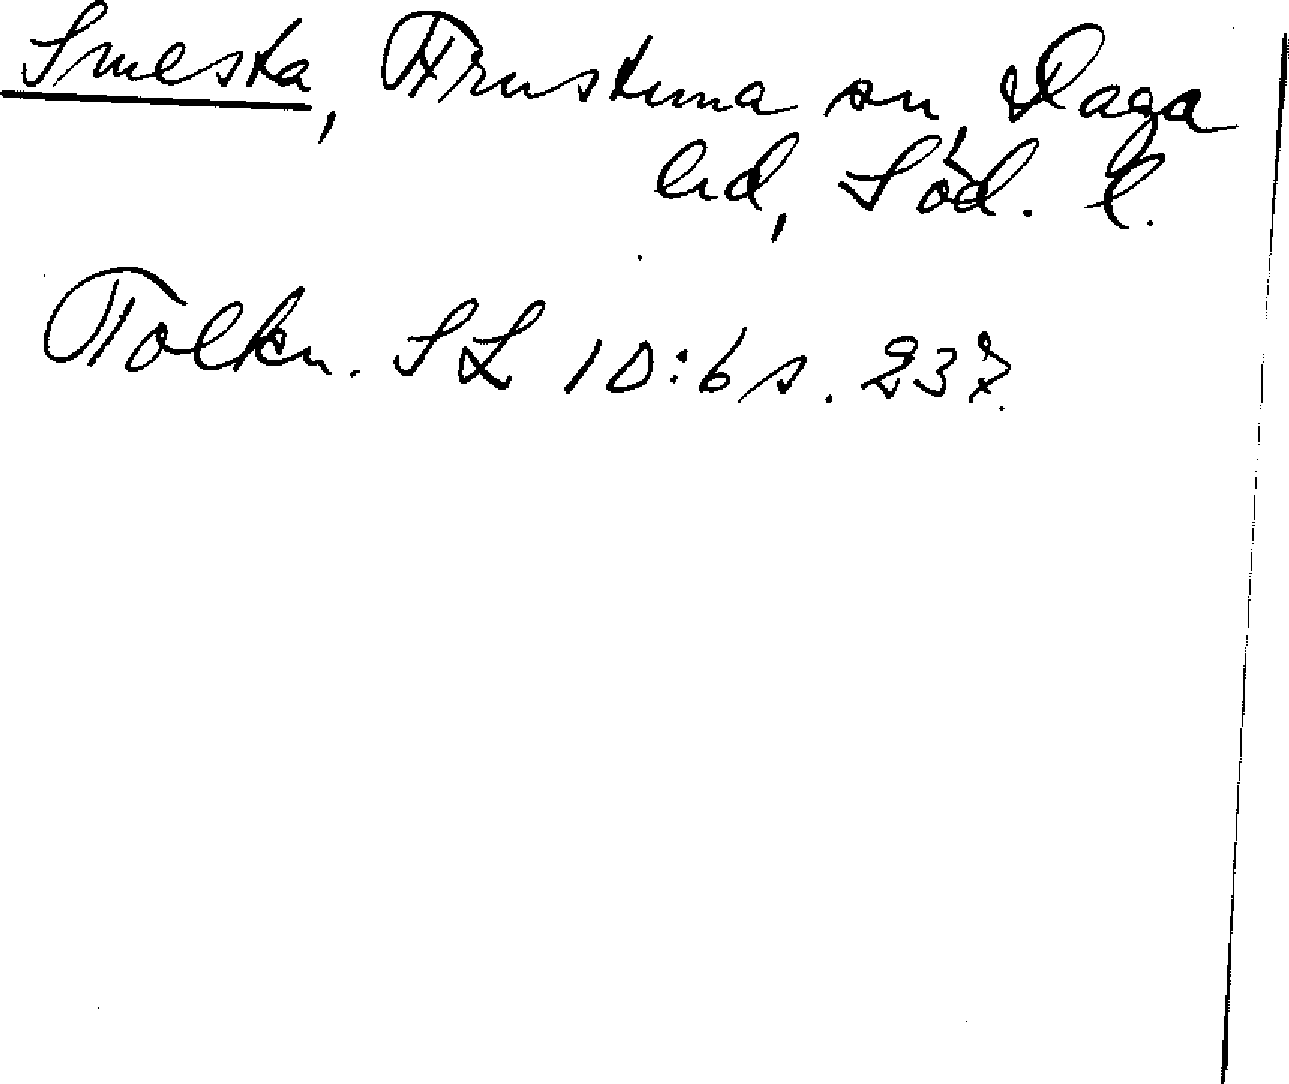 Smesta, Frustuna sn, Daga
hd, Söd. l.
Tolkn. SL 10:6 s. 237.